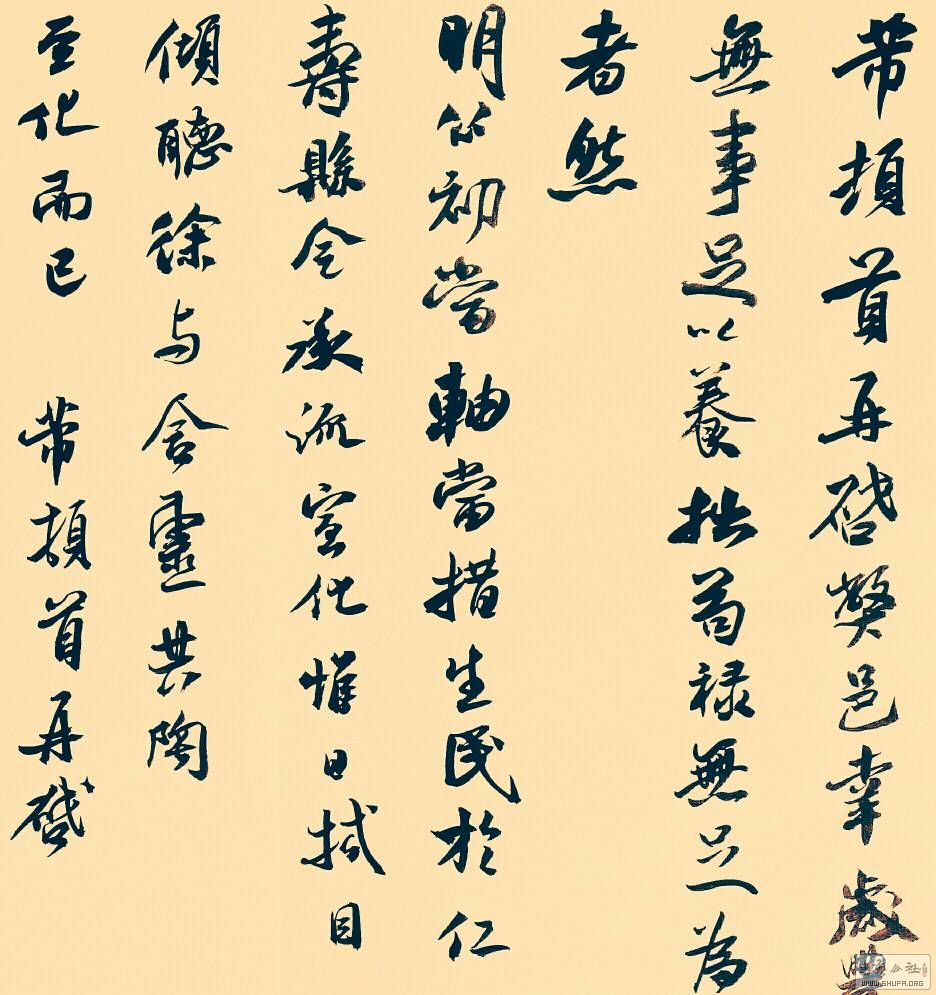 芾頓首再啓弊邑幸歲豐
無事足以養拙苟禄無足為
者然
明公初當軸當措生民於仁
壽縣令承流宣化惟日拭目
傾聽徐与含靈共陶
至化而已 芾頓首再啓
WWW.SHUFA.ORG